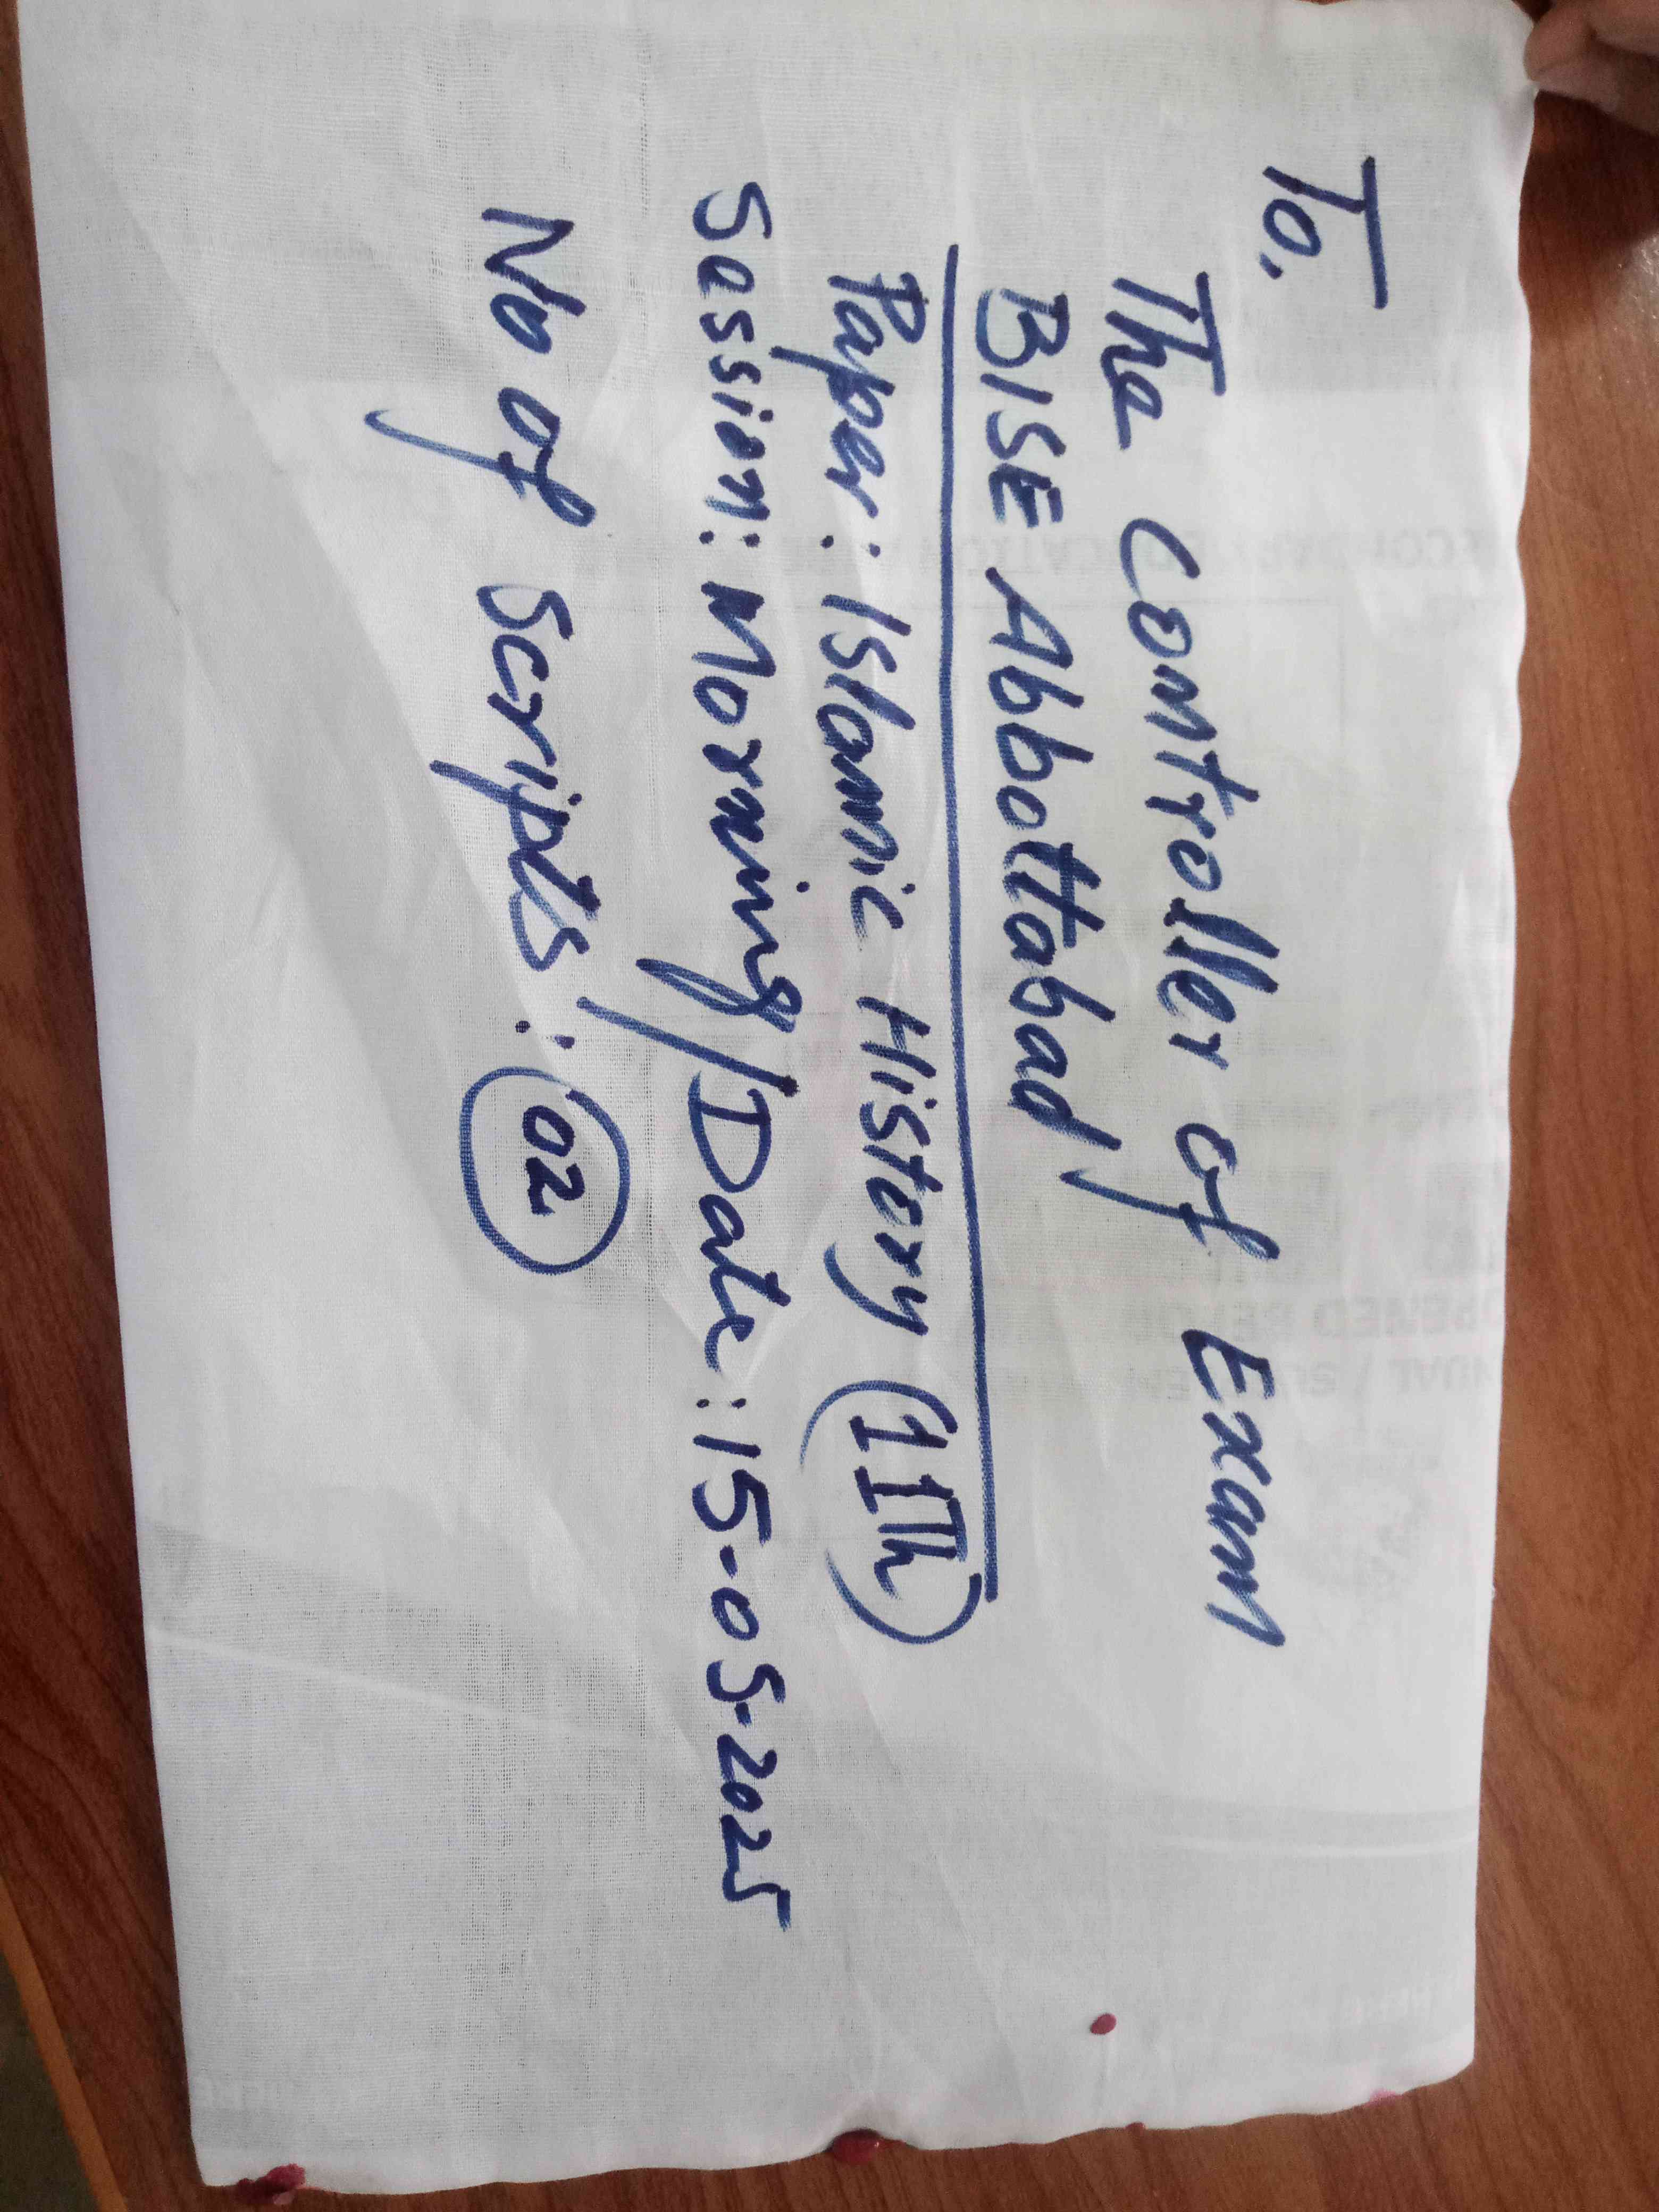 To.
The Controller of Exam
BISE Abbottabad
Paper: Islamic History (11th)
Session: Morning/Date: 15-05-2025
No of Scripts: 02